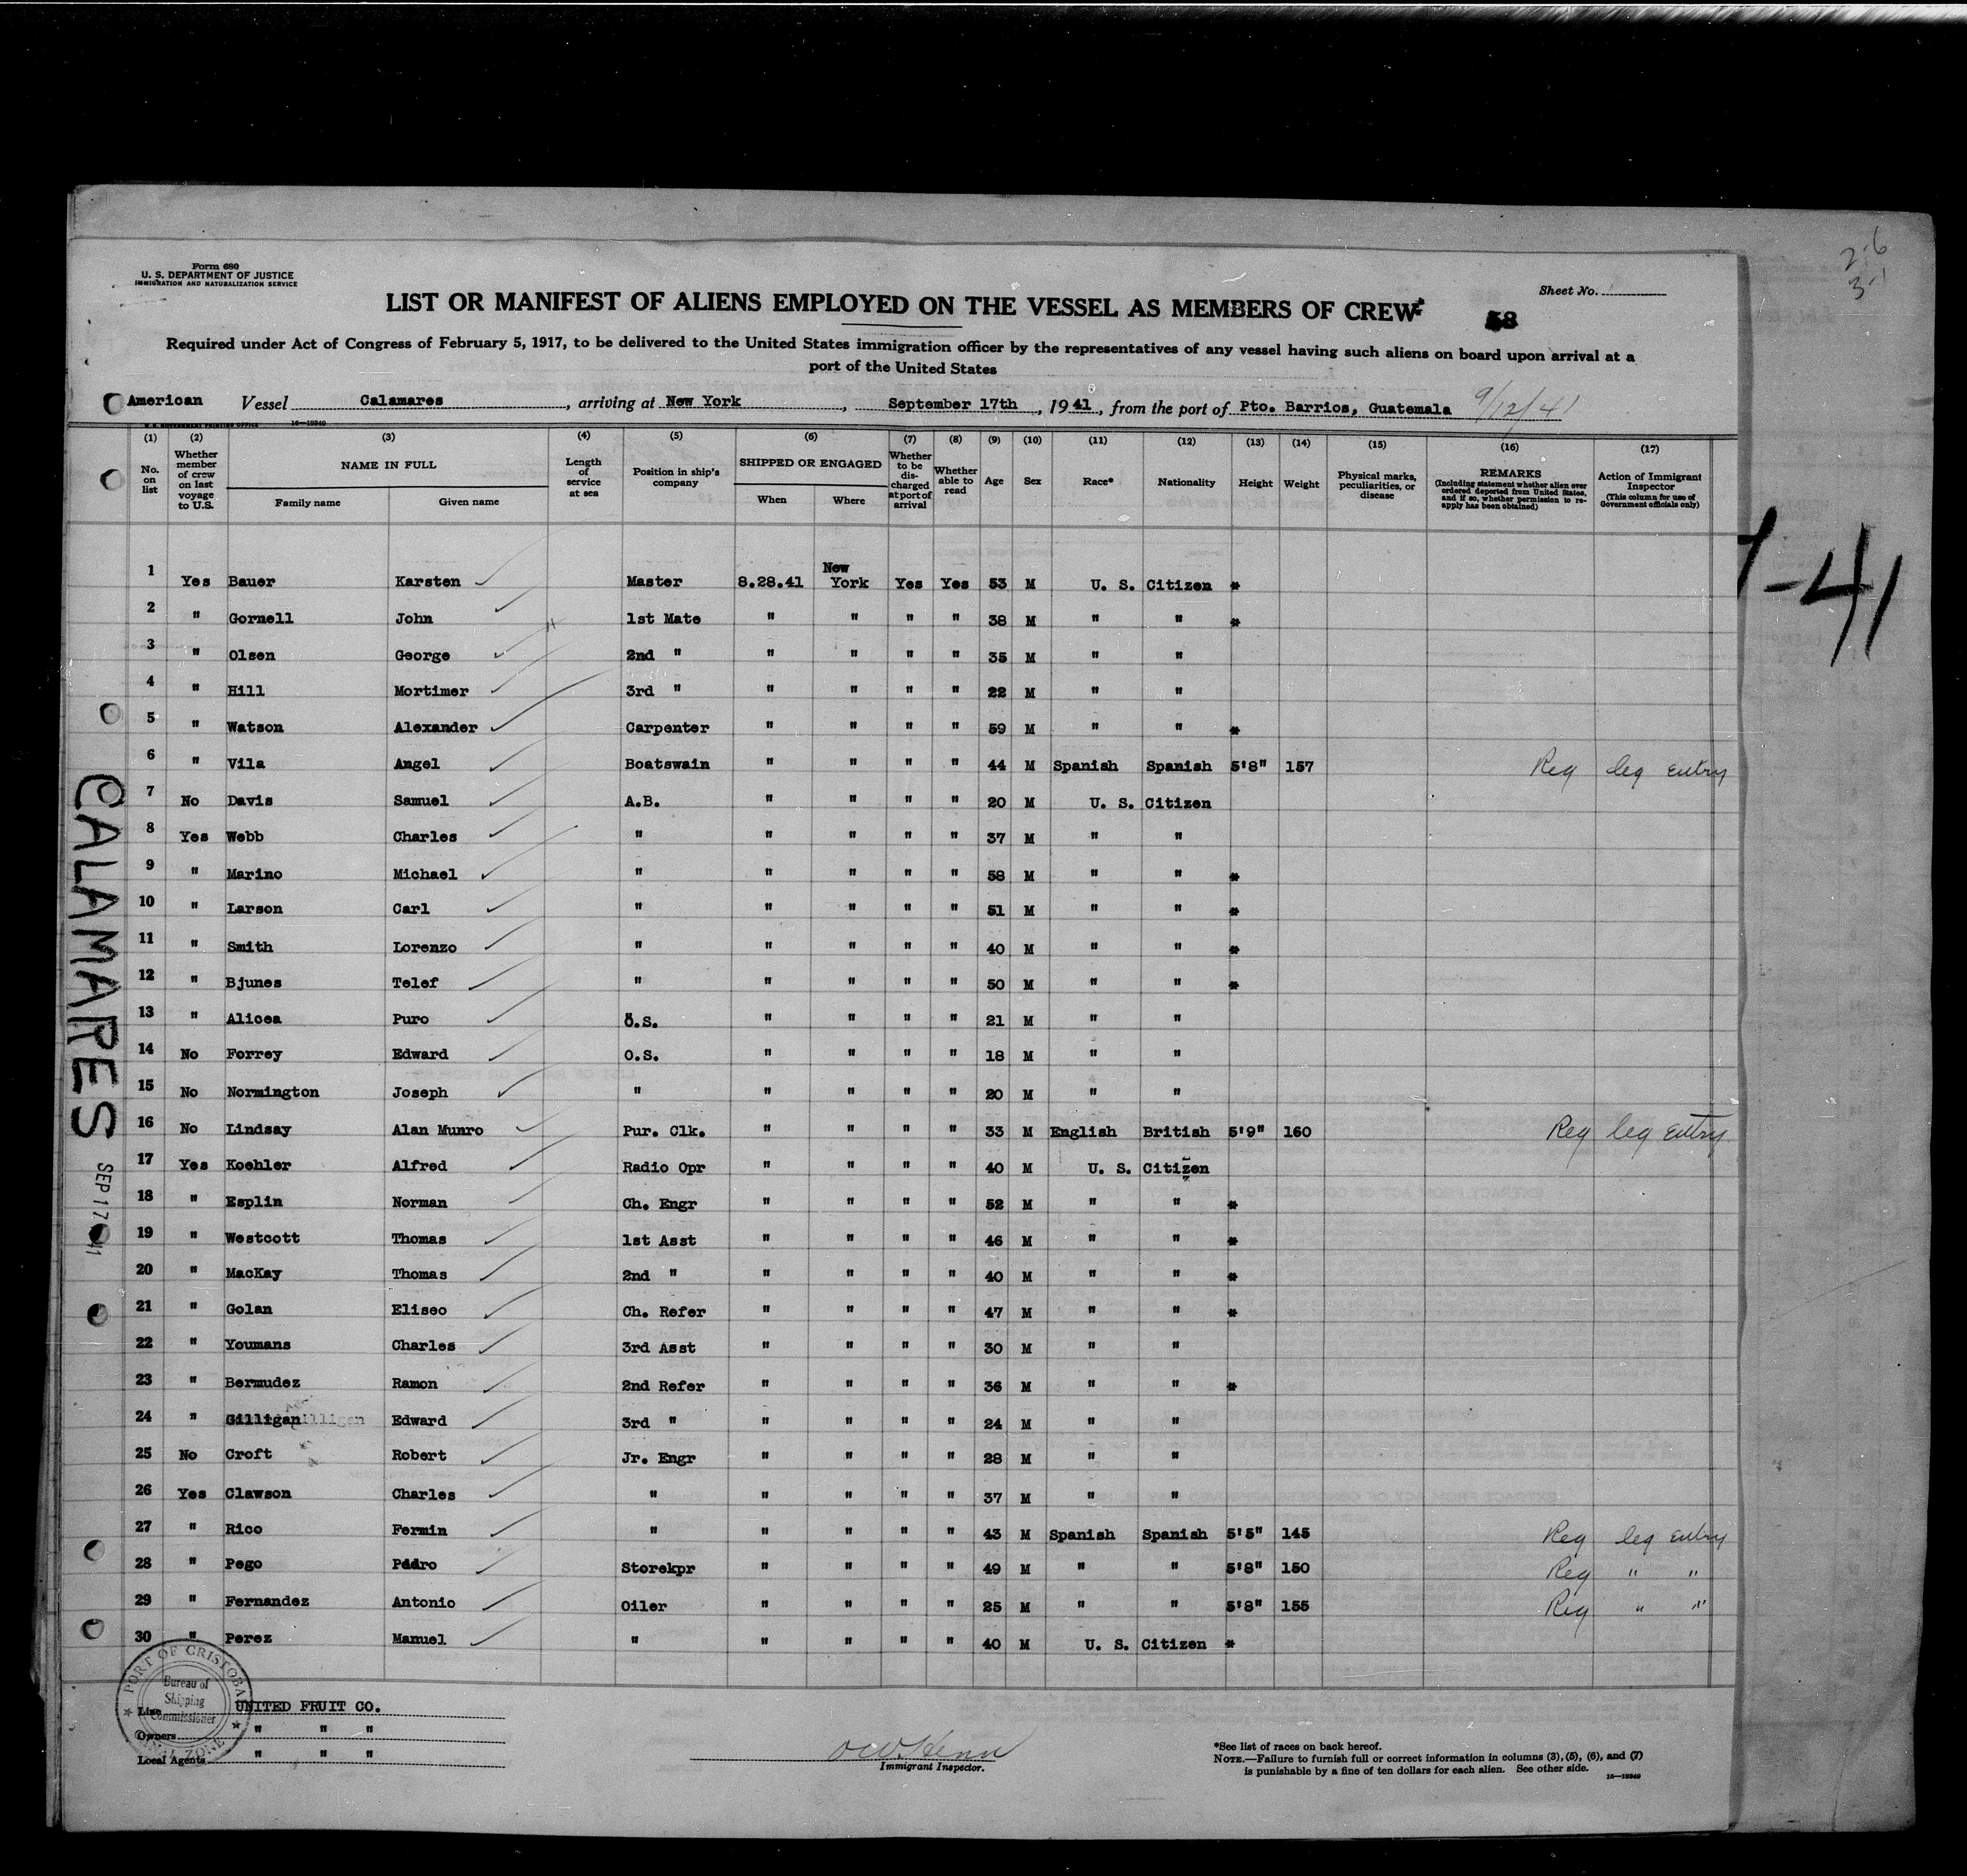 2-6
3-1
Form 680
U. S. DEPARTMENT OF JUSTICE
IMMIGRATION AND NATURALIZATION SERVICE
Sheet No.
LIST OR MANIFEST OF ALIENS EMPLOYED ON THE VESSEL AS MEMBERS OF CREW
58
Required under Act of Congress of February 5, 1917, to be delivered to the United States immigration officer by the representatives of any vessel having such aliens on board upon arrival at a
port of the United States
American Vessel Calamares, arriving at New York, September 17th, 1941, from the port of Pto. Barrios, Guatemala 9/12/41
U. S. GOVERNMENT PRINTING OFFICE 16—19240
(1) (2) (3) (4) (5) (6) (7) (8) (9) (10) (11) (12) (13) (14) (15) (16) (17)
No. on list
Whether member of crew on last voyage to U.S.
NAME IN FULL
Family name Given name
Length of service at sea
Position in ship's company
SHIPPED OR ENGAGED
When Where
Whether to be discharged at port of arrival
Whether able to read
Age
Sex
Race*
Nationality
Height
Weight
Physical marks, peculiarities, or disease
REMARKS
(Including statement whether alien ever ordered deported from United States, and if so, whether permission to reapply has been obtained)
Action of Immigrant Inspector
(This column for use of Government officials only)
1 Yes Bauer Karsten Master 8.28.41 New York Yes Yes 53 M U. S. Citizen *
2 " Gornell John 1st Mate " " " " 38 M " " *
3 " Olsen George 2nd " " " " " 35 M " "
4 " Hill Mortimer 3rd " " " " " 22 M " "
5 " Watson Alexander Carpenter " " " " 59 M " " *
6 " Vila Angel Boatswain " " " " 44 M Spanish Spanish 5'8" 157 Reg leg entry
7 No Davis Samuel A.B. " " " " 20 M U. S. Citizen
8 Yes Webb Charles " " " " " 37 M " "
9 " Marino Michael " " " " " 58 M " " *
10 " Larson Carl " " " " " 51 M " " *
11 " Smith Lorenzo " " " " " 40 M " " *
12 " Bjunes Telef " " " " " 50 M " " *
13 " Alicea Puro O.S. " " " " 21 M " "
14 No Forrey Edward O.S. " " " " 18 M " "
15 No Normington Joseph " " " " " 20 M " "
16 No Lindsay Alan Munro Pur. Clk. " " " " 33 M English British 5'9" 160 Reg leg entry
17 Yes Koehler Alfred Radio Opr " " " " 40 M U. S. Citizen
18 " Esplin Norman Ch. Engr " " " " 52 M " " *
19 " Westcott Thomas 1st Asst " " " " 46 M " " *
20 " MacKay Thomas 2nd " " " " " 40 M " " *
21 " Golan Eliseo Ch. Refer " " " " 47 M " " *
22 " Youmans Charles 3rd Asst " " " " 30 M " "
23 " Bermudez Ramon 2nd Refer " " " " 36 M " " *
24 " Gilligan Edward 3rd " " " " " 24 M " "
25 No Croft Robert Jr. Engr " " " " 28 M " "
26 Yes Clawson Charles " " " " " 37 M " "
27 " Rico Fermin " " " " " 43 M Spanish Spanish 5'5" 145 Reg leg entry
28 " Pego Pedro Storekpr " " " " 49 M " " 5'8" 150 Reg " "
29 " Fernandez Antonio Oiler " " " " 25 M " " 5'8" 155 Reg " "
30 " Perez Manuel " " " " " 40 M U. S. Citizen *
CALAMARES
SEP 17 41
-41
PORT OF CRISTOBAL
Bureau of
Shipping
Commissioner
CANAL ZONE
Line UNITED FRUIT CO.
Owners " " "
Local Agents " " "
Immigrant Inspector.
*See list of races on back hereof.
NOTE.—Failure to furnish full or correct information in columns (3), (5), (6), and (7)
is punishable by a fine of ten dollars for each alien. See other side.
16—19240